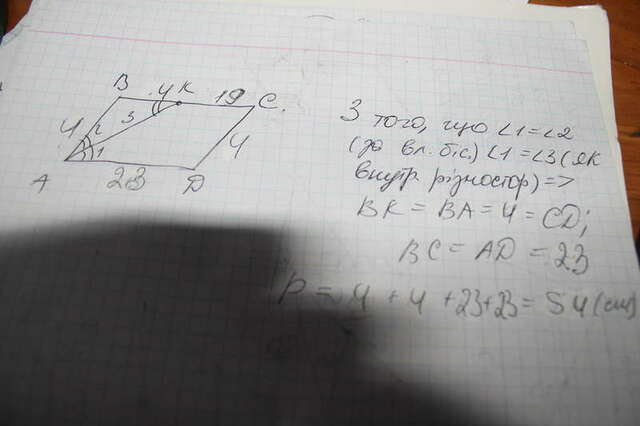 B 4 K 19 C.
4 2 3 4
1
A 23 D
З того, що ∠1=∠2
(за вл. біс.) ∠1=∠3 (як
внутр. різностор) =>
BK = BA = 4 = CD;
BC = AD = 23
P = 4 + 4 + 23+23= 54 (см)